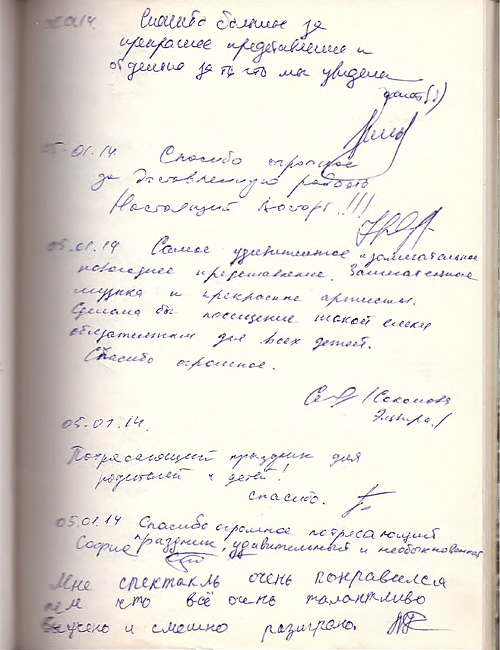 .01.14. Спасибо большое за
прекрасное представление и
отдельно за то что мы увидели
05-01.14 Спасибо огромное
за доставленную радость
Настоящий восторг!!!
05.01.14 Самое удивительное и замечательное
новогоднее представление. Замечательные
музыка и прекрасные артисты.
Сделала бы посещение такой елки
обязательным для всех детей.
Спасибо огромное.
(Соколова
Эльвира)
05.01.14.
Потрясающий праздник для
родителей и детей!
Спасибо.
05.01.14 Спасибо огромное потрясающий
София праздник, удивительный и необыкновенный
Мне спектакль очень понравился
тем что всё очень талантливо
и смешно разиграно.